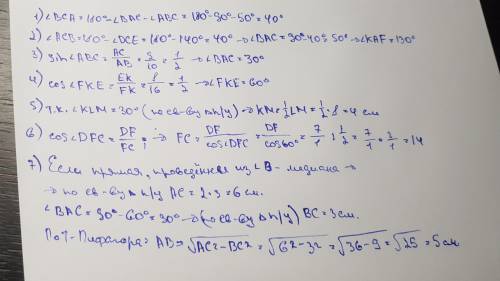 1) ∠BCA=180°-∠BAC-∠ABC=180°-90°-50°=40°
2) ∠ACB=180°-∠DCE=180°-140°=40° → ∠BAC=90°-40°=50° → ∠KAF=130°
3) sin∠ABC=AC/AB=5/10=1/2 → ∠BAC=30°
4) cos∠FKE=EK/FK=8/16=1/2 → ∠FKE=60°
5) т.к. ∠KLM=30° (по св-ву Δ п/у) → KM=1/2LM=1/2·8=4 см
6) cos∠DFC=DF/FC; → FC=DF/cos∠DFC=DF/cos60°=7/1:1/2=7/1·2/1=14
7) Если прямая, проведённая из ∠B - медиана →
→ по св-ву Δ п/у AC=2·3=6 см.
∠BAC=90°-60°=30° → (по св-ву Δ п/у) BC=3 см.
По т-Пифагора: AB=√AC²-BC²=√6²-3²=√36-9=√25=5 см